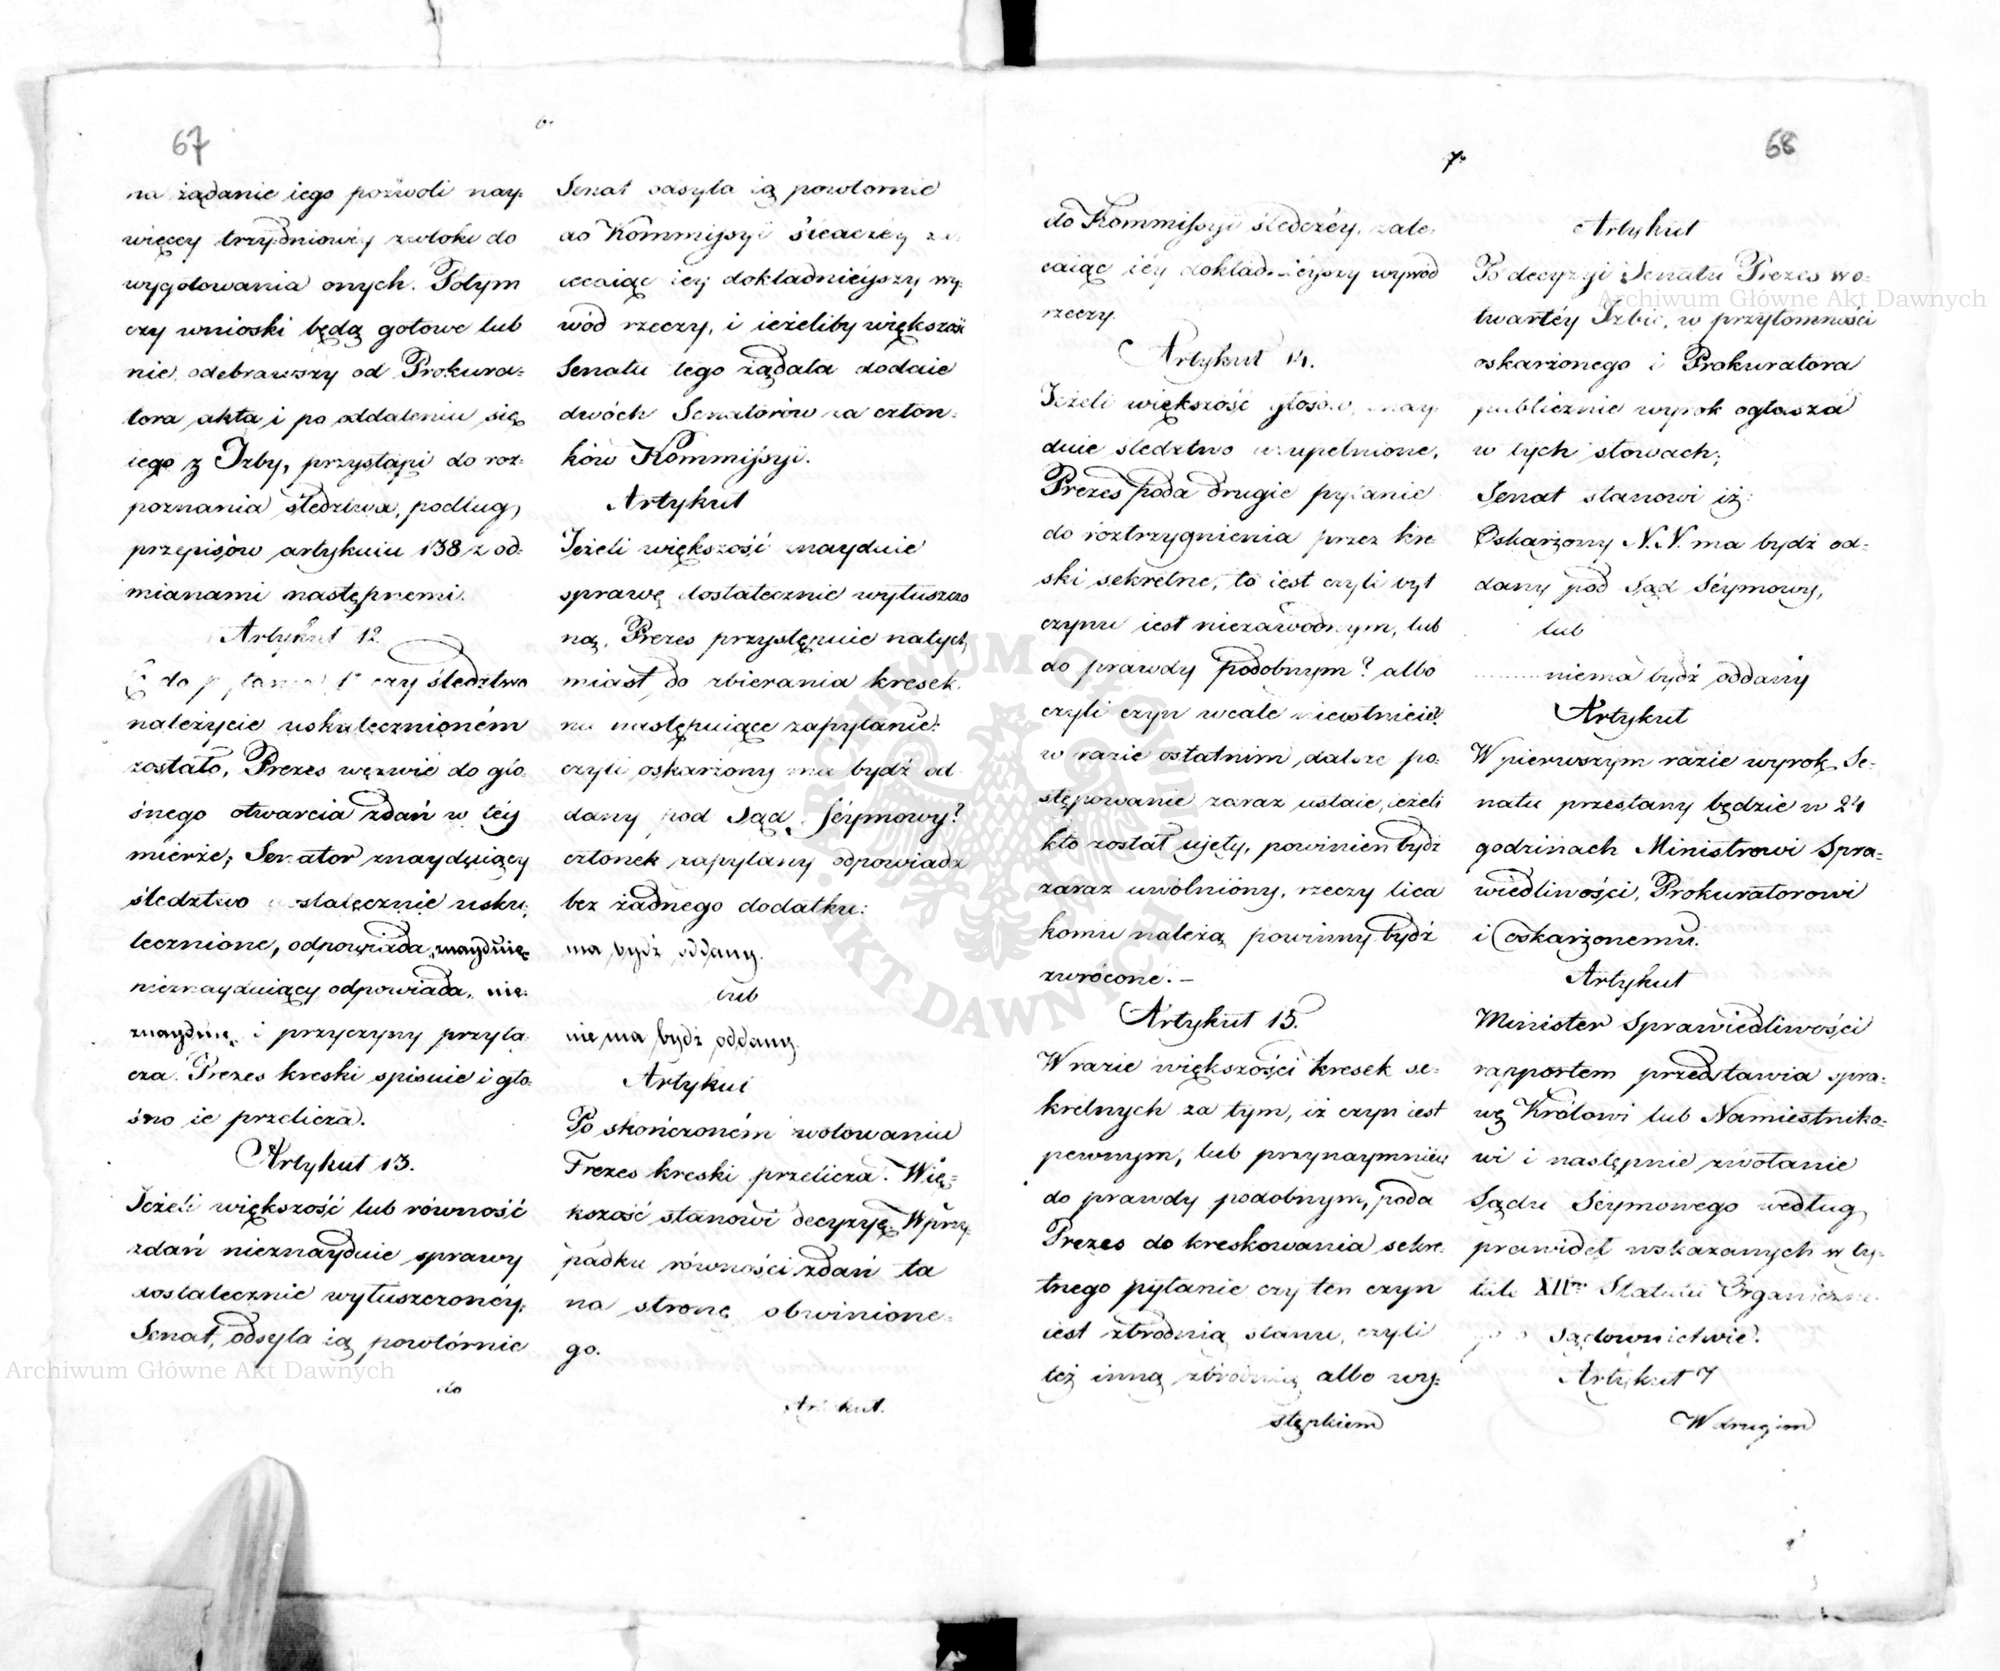 67
6.
na żądanie iego pozwoli nay-
więcey trzydniowéy zwłoki do
wygotowania onych. Potym
czy wnioski będą gotowe lub
nie, odebrawszy od Prokura=
tora akta i po oddaleniu się
iego z Izby, przystąpi do roz=
poznania śledztwa, podług
przepisów artykułu 138 z od=
mianami następnemi.
Artykuł 12.
Co do pytania 1º czy śledztwo
należycie uskutecznioném
zostało, Prezes wezwie do gło
śnego otwarcia zdań w téy
mierze; Senator znayduiący
śledztwo dostatecznie usku=
tecznione, odpowiada „znayduię"
nieznayduiący odpowiada „nie=
znayduię" i przyczyny przyta
cza. Prezes kreski spisuie i gło=
śno ie przelicza.
Artykuł 13.
Jeżeli większość lub równość
zdań nieznayduie sprawy
dostatecznie wyłuszczoney,
Senat, odsyła ią powtórnie
do
Senat odsyła ią powtornie
do Kommissyi śledczéy za
lecaiąc iey dokładnieyszy wy=
wód rzeczy, i ieżeliby większość
Senatu tego żądała dodaie
dwóch Senatorów za człon=
ków Kommissyi.
Artykuł
Jeżeli większość znayduie
sprawę dostatecznie wyłuszczo
ną, Prezes przystępuie natych
miast do zbierania kresek
na następuiące zapytanie:
czyli oskarżony ma bydź od
dany pod Sąd Séymowy?
członek zapytany odpowiada
bez żadnego dodatku:
ma bydź oddany.
lub
nie ma bydź oddany.
Artykuł
Po skończoném wotowaniu
Prezes kreski przelicza. Wię=
kszość stanowi decyzyę. W przy
padku równości zdań ta
na stronę obwinione=
go.
Artykuł.
68
7.
do Kommissyi śledczéy, zale=
caiąc iéy dokładnieyszy wywód
rzeczy.
Artykuł 14.
Jeżeli większość głosów znay=
duie śledztwo uzupełnione,
Prezes poda drugie pytanie
do roztrzygnienia przez kre
ski sekretne, to iest czyli byt
czynu iest niezawodnym, lub
do prawdy podobnym? albo
czyli czyn wcale nieistnieie?
w razie ostatnim dalsze po=
stępowanie zaraz ustaie, ieżeli
kto został ujęty, powinien bydź
zaraz uwolniony, rzeczy lica
komu należą powinny bydź
zwrócone. —
Artykuł 15.
W razie większości kresek se=
kretnych za tym, iż czyn iest
pewnym, lub przynaymniey
do prawdy podobnym, poda
Prezes do kreskowania sekre=
tnego pytanie czy ten czyn
iest zbrodnią stanu, czyli
też inną zbrodnią albo wy=
stępkiem
Artykuł
Po decyzyi Senatu Prezes w o=
twartéy Izbie, w przytomności
oskarżonego i Prokuratora
publicznie wyrok ogłasza
w tych słowach;
Senat stanowi iż:
Oskarżony N.N. ma bydź od=
dany pod Sąd Séymowy,
lub
.......... niema bydź oddany
Artykuł
W pierwszym razie wyrok Se=
natu przesłany będzie w 24
godzinach Ministrowi Spra=
wiedliwości, Prokuratorowi
i oskarżonemu.
Artykuł
Minister Sprawiedliwości
rapportem przedstawia spra=
wę Królowi lub Namiestniko=
wi i następnie zwołanie
Sądu Seymowego według
prawideł wskazanych w ty=
tule XIIym Statutu Organiczne
go o Sądownictwie.
Artykuł
W drugim
Archiwum Główne Akt Dawnych
Archiwum Główne Akt Dawnych
ARCHIWUM GŁÓWNE AKT DAWNYCH